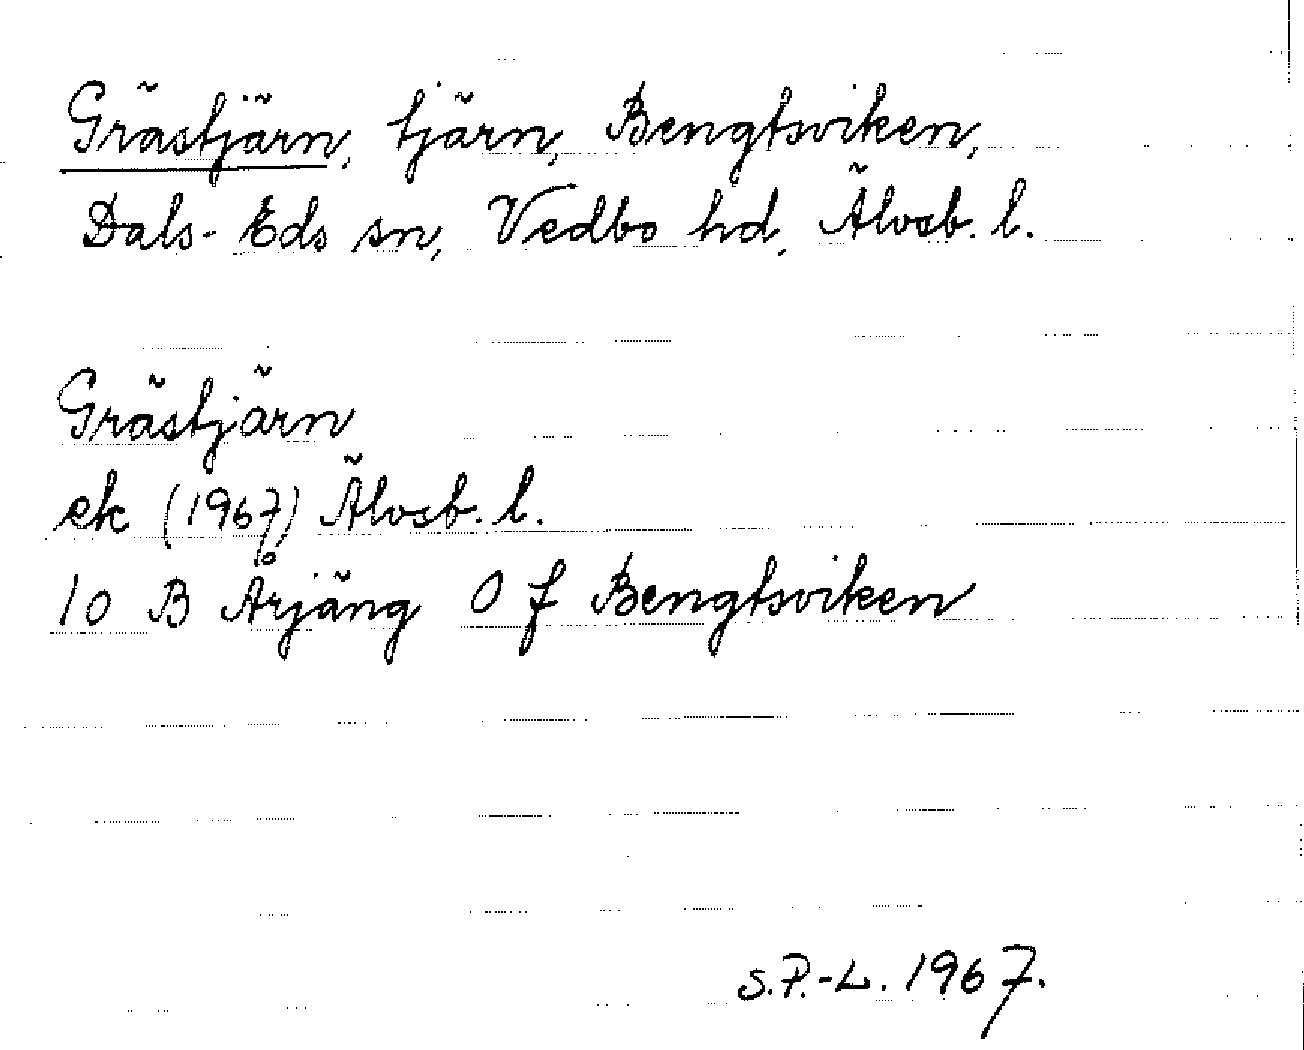 Grästjärn, tjärn, Bengtsviken,
Dals-Eds sn, Vedbo hd, Älvsb. l.
Grästjärn
ek (1967) Älvsb. l.
10 B Årjäng 0 f Bengtsviken
S.P.-L. 1967.